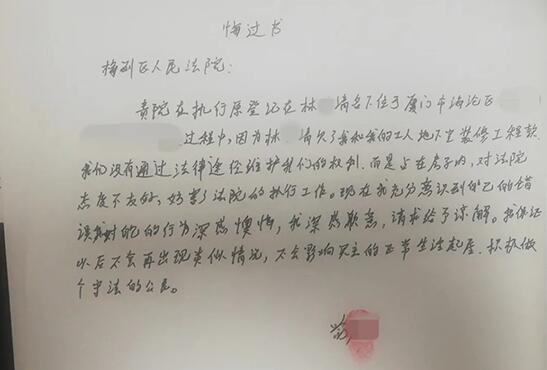 悔过书
梅列区人民法院：
贵院在执行原登记在林 靖名下位于厦门市海沧区
过程中，因为林 靖欠了我和我的工人地下室装修工程款
我们没有通过法律途径维护我们的权利，而是占在房子内，对法院
态度不友好，妨害了法院的执行工作。现在我充分意识到自己的错
误我对自己的行为深感懊悔，我深感歉意，请求给予谅解。我保证
以后不会再出现类似情况，不会影响买主的正常生活起居，积极做
个守法的公民。